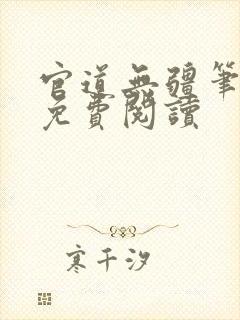 官道無疆筆
免費閱讀
寒千汐